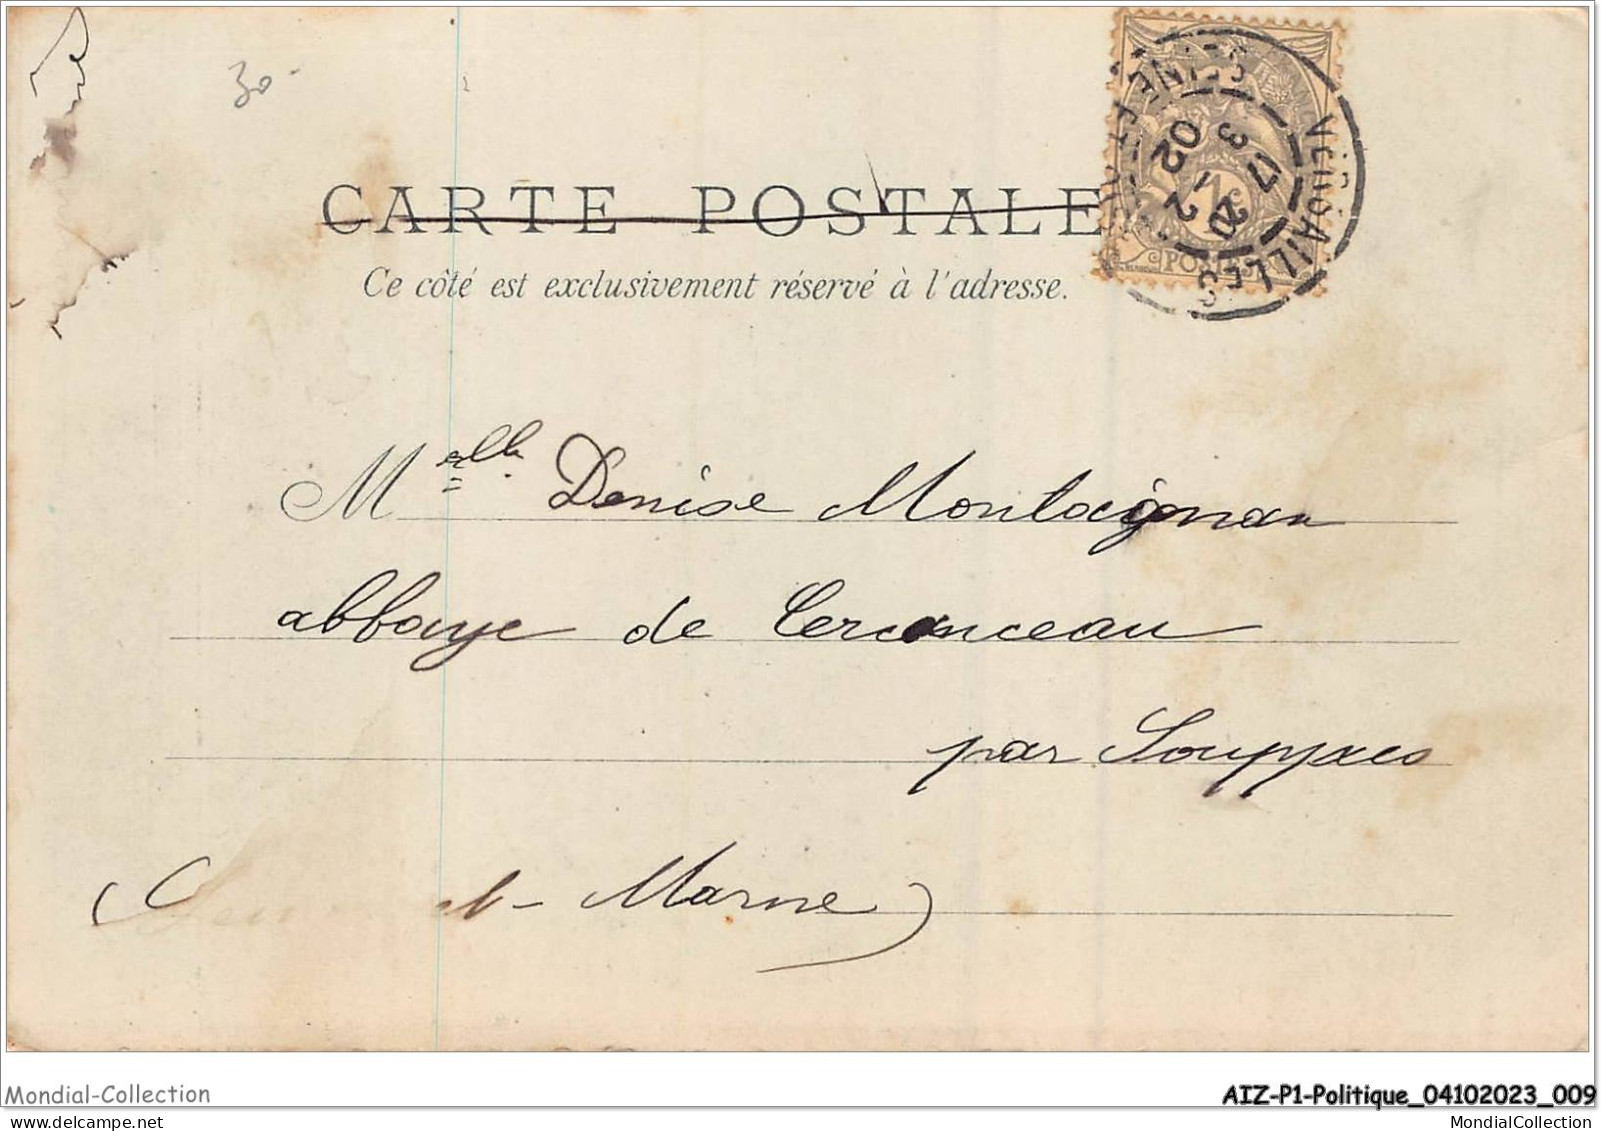 30
CARTE POSTALE
Ce côté est exclusivement réservé à l'adresse.
1c
POSTES
VERSAILLES
SEINE ET OISE
3
17
12
02
Melle Denise Montaignan
abbaye de Cercanceau
par Souppes
(Seine et-Marne)
Mondial-Collection
AIZ-P1-Politique_04102023_009
MondialCollection
delcampe.net